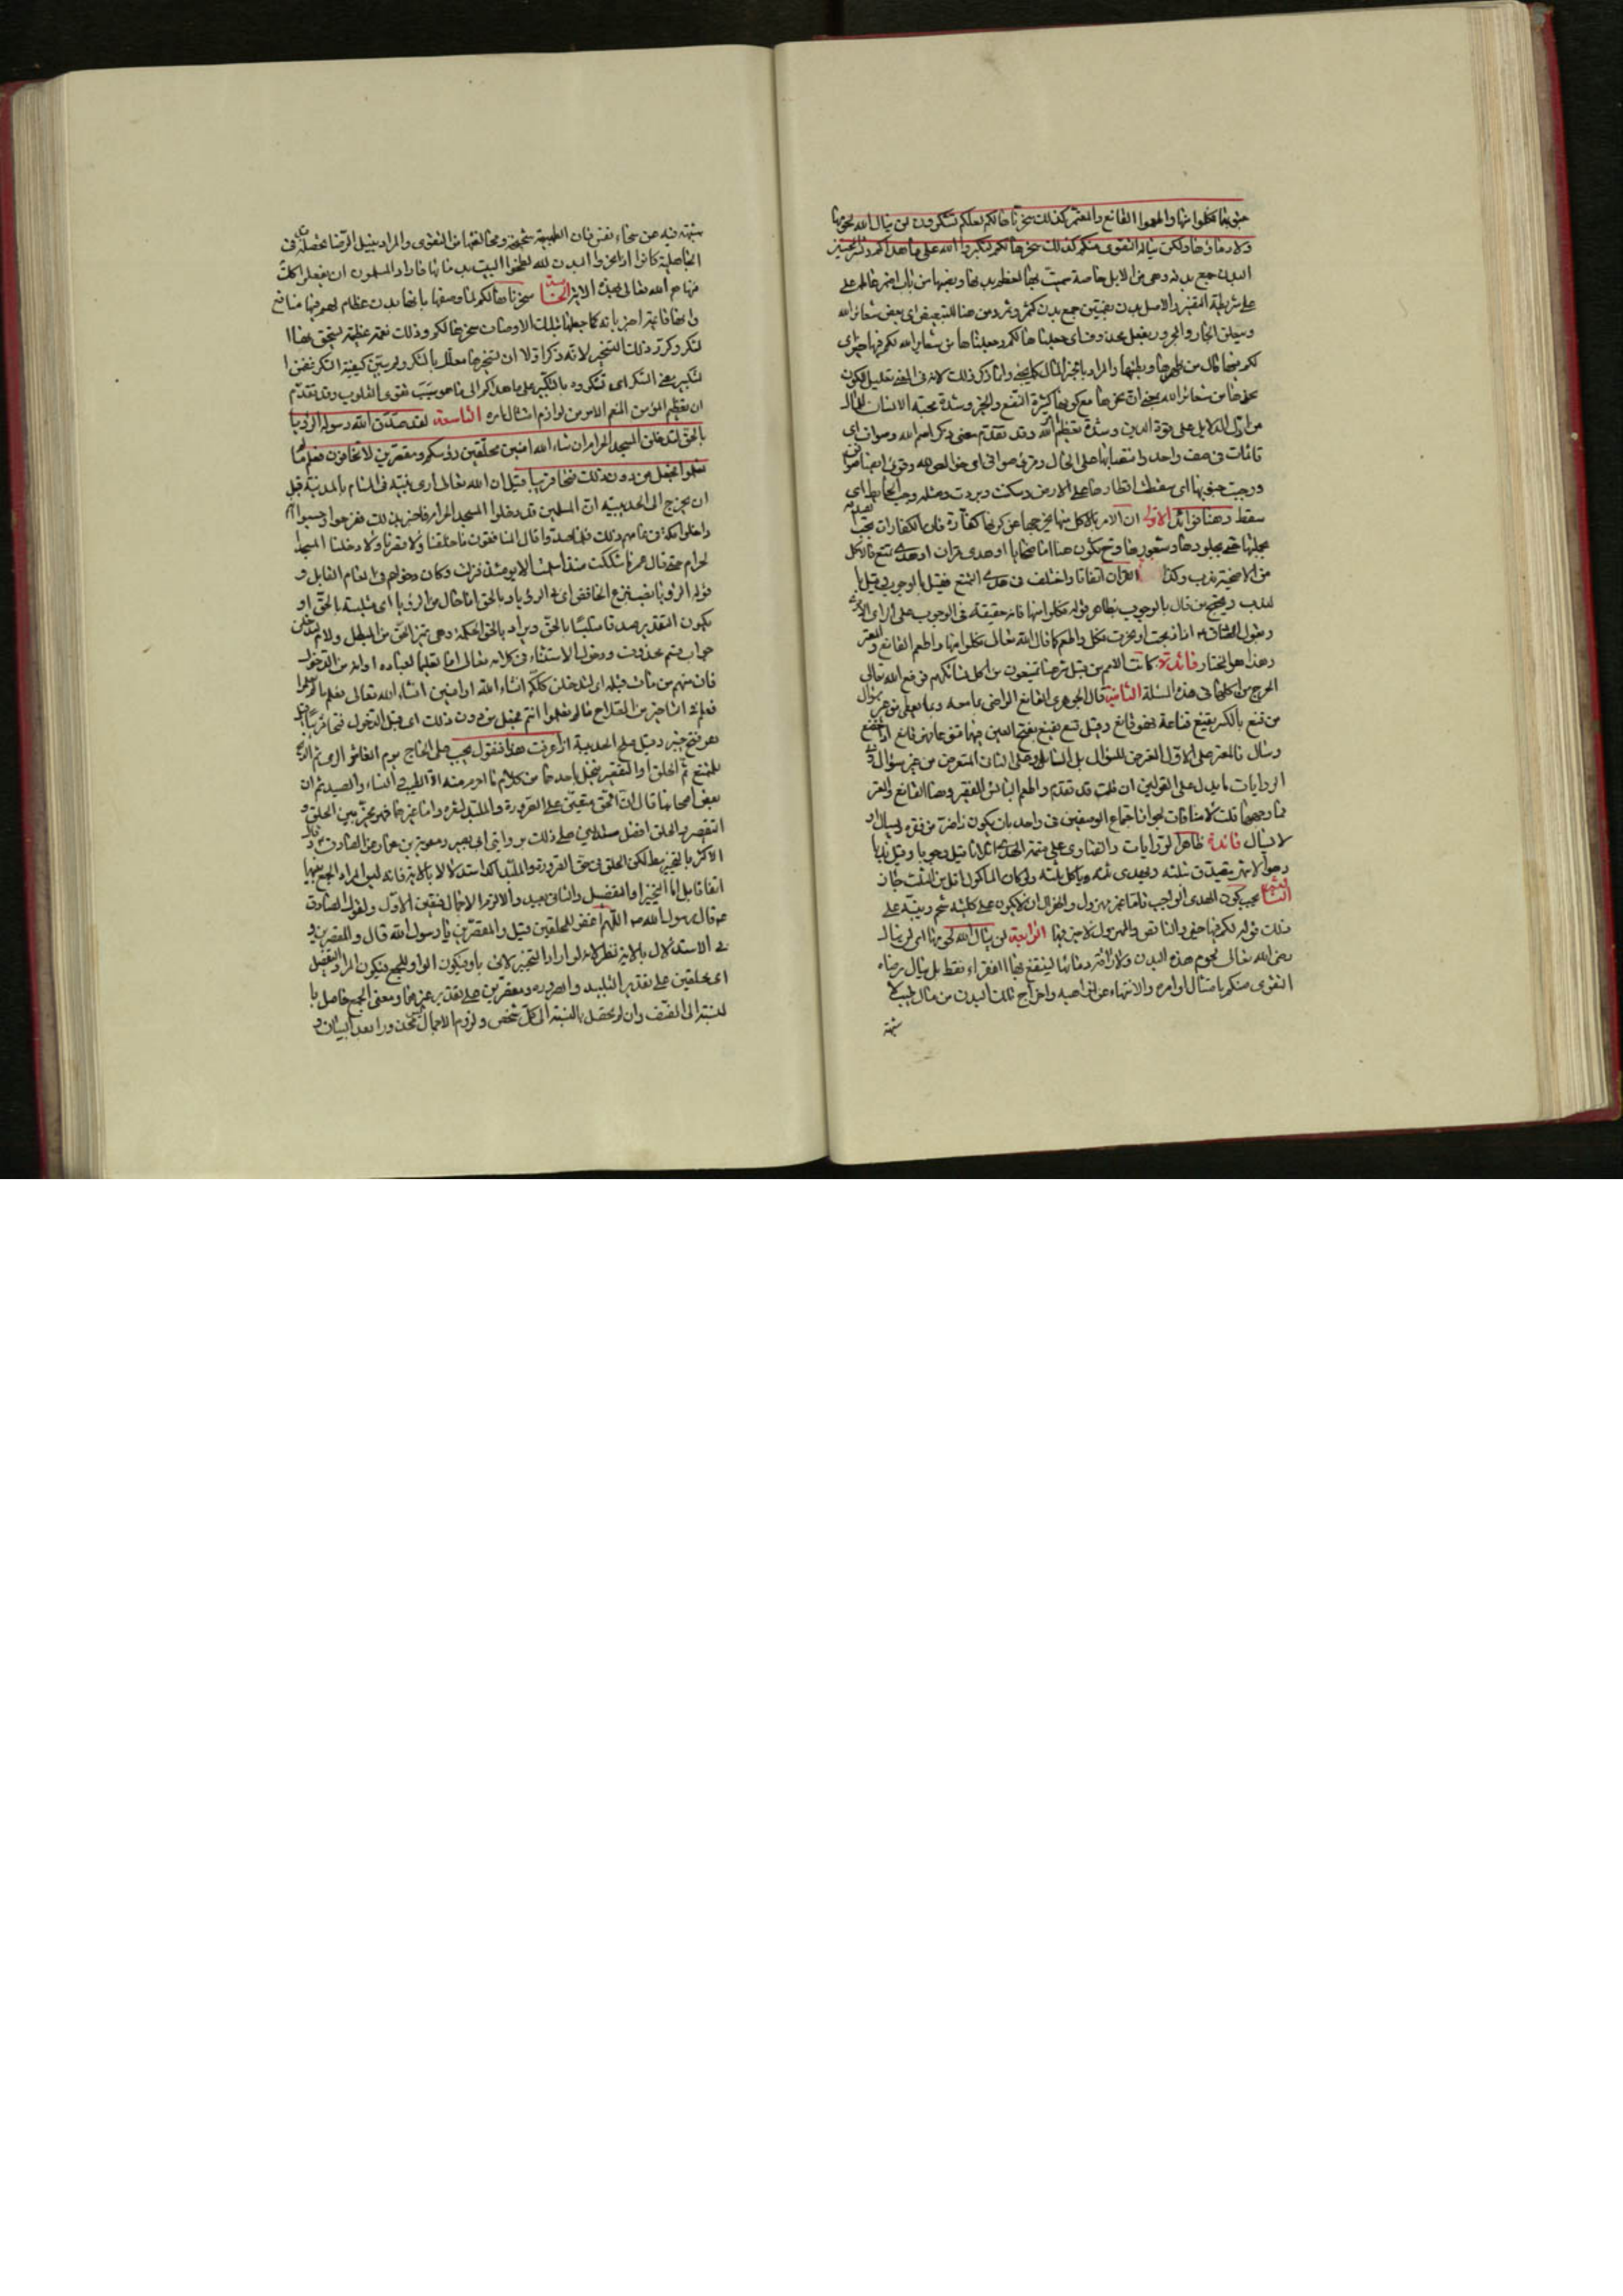 جنوبها فكلوا منها واطعموا القانع والمعتر كذلك سخرناها لكم لعلكم تشكرون لن ينال الله لحومها
ولا دماؤها ولكن يناله التقوى منكم كذلك سخرها لكم لتكبروا الله على ما هداكم وبشر المحسنين
البدن جمع بدنه وهي من الابل خاصة سميت بها لعظم بدنها ونصبها من باب اضمر عامله على
على شريطة التفسير والاصل بدن بضمتين جمع بدن كثمر وثمر ومن هنا للتبعيض اي بعض شعائر الله
ويتعلق الجار والمجرور بفعل محذوف اي جعلناها لكم وجعلناها من شعائر الله لكم فيها خير اي
لكم فيها مال من ظهرها وبطنها والمراد بالخير المال كما يجيء وانما ذكر ذلك لانه في المعنى تعليل لكون
نحرها من شعائر الله بمعنى ان نحرها مع كونها كثيرة النفع والخير وشدة محبة الانسان للمال
من ادل الدلايل على قوة الدين وشدة تعظيم الله وقد تقدم معنى ذكر اسم الله وصواف اي
قائمات في صف واحد وانتصابها على الحال وقرئ صوافي اي خوالص لله وقرئ ايضا صوافن
ووجبت جنوبها اي سقطت اقطارها على الارض وسكنت وبردت ومثله وجب الحائط اي
سقط وهنا فوائد الاولى ان الامر بالاكل منها يخرجها عن كونها كفارة فان الكفارات يجب
بجملتها حتى بجلودها وشعورها وح يكون هنا اما ضحايا او هدى قران او هدى تمتع فالاكل
من الاضحية ندب وكذا القران اتفاقا واختلف في هدى التمتع فقيل بالوجوب وقيل با
لندب ويحتج من قال بالوجوب بظاهر قوله فكلوا منها فانه حقيقة في الوجوب على الراى
وبقول الصادق ع اذا ذبحت او نحرت فكل واطعم كما قال الله تعالى فكلوا منها واطعم القانع والمعتر
وهذا هو المختار فائدة كانت الامم من قبل شرعنا يمتنعون من اكل نسائكهم فرفع الله تعالى
الحرج من اكلها في هذه الملة الثانية قال الجوهري القانع الراضي بما معه وبما يعطى من غير سؤال
من قنع بالكسر يقنع قناعة فهو قانع وقيل قنع يقنع بفتح العين فيهما قنوعا فهو قانع اذا خضع
وسال فالمعتر على الاول المعترض للسؤال بل السائل وعلى الثاني المتعرض من غير سؤال وفي
الروايات ما يدل على القولين ان قلت قد تقدم واطعم البائس الفقير وهنا القانع والمعتر
فما وجهها قلت لا منافات لجواز اجتماع الوصفين في واحد بان يكون ناضرة من فقره ويسال او
لا يسال فائدة ظاهر الروايات والفتاوى على قسمة الهدى اثلاثا قيل وجوبا وقيل ندبا
وهو الاشهر يتصدق بثلثه ويهدى ثلثه وياكل ثلثه ولو كان الماكول اقل من الثلث جاز
الثالثة يجب كون الهدى الواجب تاما غير مهزول والهزال ان لا يكون على كليتيه شحم ونبه على
ذلك قوله لكم فيها خير والناقص والمهزول لا خير فيها الرابعة لن ينال الله لحومها اى لن ينال
رضى الله تعالى لحوم هذه البدن ولا اراقة دمائها لينتفع بها الفقراء فقط بل ينال رضاه
التقوى منكم بامتثال اوامره والانتهاء عن نواهيه واخراج تلك البدن من مال طيب لا
شبهة
شبهة فيه عن سخاء نفس فان الطبيعة شحيحة ومخالفتها من التقوى والمراد بنيل الرضا تحصيله
الجاهلية كانوا اذا نحروا البدن لله لطخوا البيت بدمائها فاراد المسلمون ان يفعلوا كذلك
فنهاهم الله تعالى بهذه الاية الخامسة سخرناها لكم لما وصفها بانها بدن عظام لهم فيها منافع
وانها قائمة اخبر بانه كما جعلناها بتلك الاوصاف سخرها لكم وذلك نعمة عظيمة يستحق بها ا
لشكر وكرر ذلك التسخير لانه ذكر اولا ان تسخيرها معلل بالشكر ولم يبين كيفية الشكر فضمن ا
لتكبير معنى الشكر اى تشكروه بالتكبير على ما هداكم الى ما هو سبب تقوى القلوب وقد تقدم
ان تعظيم المؤمن المنعم الامر من لوازم امتثال امره التاسعة لقد صدق الله رسوله الرؤيا
بالحق لتدخلن المسجد الحرام ان شاء الله امنين محلقين رؤسكم ومقصرين لا تخافون فعلم ما
لم تعلموا فجعل من دون ذلك فتحا قريبا قيل ان الله تعالى ارى نبيه في المنام بالمدينة قبل
ان يخرج الى الحديبية ان المسلمين قد دخلوا المسجد الحرام فاخبر بذلك ففرحوا وحسبوا انهم
داخلوا مكة في عامهم ذلك فلما صدوا قال المنافقون ما حلقنا ولا قصرنا ولا دخلنا المسجد ا
لحرام حتى قال عمر ما شككت منذ اسلمت الا يومئذ فنزلت وكان دخولهم في العام القابل و
قوله الرؤيا نصب بنزع الخافض اى في الرؤيا وبالحق اما حال من الرؤيا اى متلبسة بالحق او
يكون التقدير صدقا متلبسا بالحق ويراد بالحق الحكمة وهي تميز الحق من الباطل ولام لتدخلن
جواب قسم محذوف ودخول الاستثناء في كلامه تعالى اما تعليما لعباده او لعدم الدخول
فان منهم من مات قبله اى لتدخلن كلكم انشاء الله او امنين انشاء الله تعالى فعلم ما لم تعلموا
فعلم ان في التاخير من الصلاح ما لم تعلموا انتم فجعل من دون ذلك اى قبل الدخول فتحا قريبا قيل
هو فتح خيبر وقيل صلح الحديبية اذا عرفت هذا فنقول يجب على الحاج يوم العاشر الرمى ثم الذبح
للمتمتع ثم الحلق او التقصير فيحل باحدهما من كل ما احرم منه الا الطيب والنساء والصيد ثم ان
بعض اصحابنا قال ان الحلق متعين على الصرورة والملبد شعره واما غيرهما فهو مخير بين الحلق و
التقصير والحلق افضل مستدلين على ذلك بروايتى ابى بصير ومعوية بن عمار عن الصادق ع وقال
الاكثر بالتخيير مطلقا لكن الحلق في حق الصرورة والملبد اكد استدلالا بالاية فانه ليس المراد الجمع بينهما
اتفاقا بل اما التخيير او التفصيل والثاني بعيد والا لزم الاجمال فتعين الاول ولقول الصادق
ع قال رسول الله ص اللهم اغفر للمحلقين قيل والمقصرين يا رسول الله قال والمقصرين و
فى الاستدلال بالاية نظر لانه لو اراد التخيير لاتى باو فيكون الواو للجمع فيكون المراد التفصيل
اى محلقين على تقدير التلبيد والصرورة ومقصرين على تقدير غيرهما ومعنى الجمع حاصل با
لنسبة الى الصنف وان لم يحصل بالنسبة الى كل شخص ولزوم الاجمال محذورا بعد البيان و